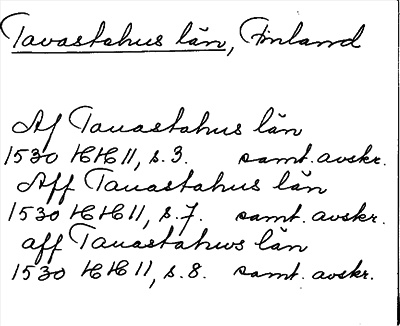 Tavastahus län, Finland
Af Tauastahus län
1530 HH II, s. 3. samt. avskr.
Aff Tauastahus län
1530 HH II, s. 7. samt. avskr.
aff Tauastahws län
1530 HH II, s. 8. samt. avskr.